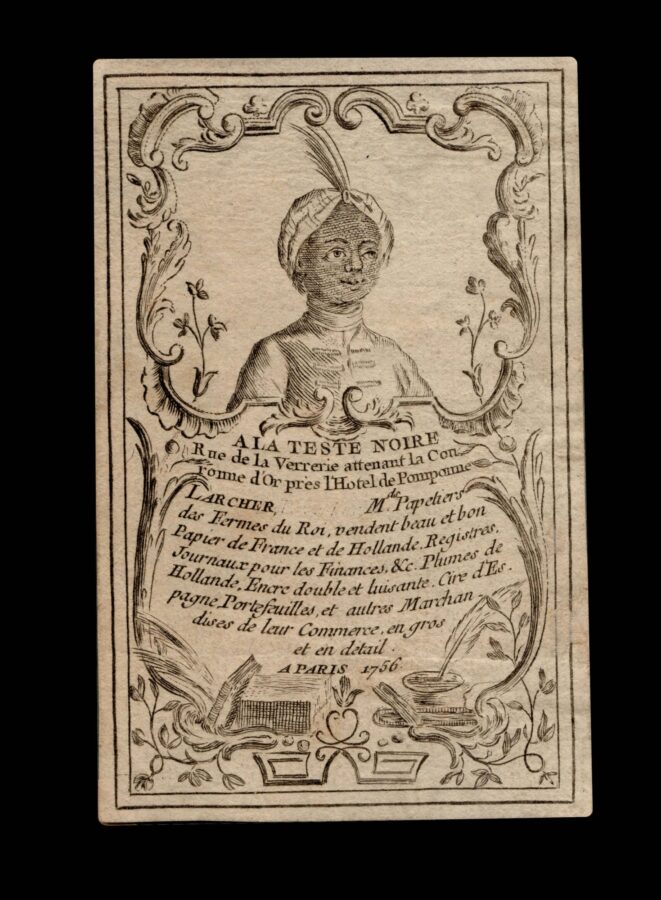 A LA TESTE NOIRE
Rue de la Verrerie attenant la Cou
ronne d'Or près l'Hotel de Pomponne
LARCHER, M.de Papetiers
des Fermes du Roi, vendent beau et bon
Papier de France et de Hollande, Registres,
Journaux pour les Finances, &c. Plumes de
Hollande, Encre double et luisante. Cire d'Es-
pagne, Portefeuilles, et autres Marchan-
dises de leur Commerce, en gros
et en détail.
A PARIS 1756